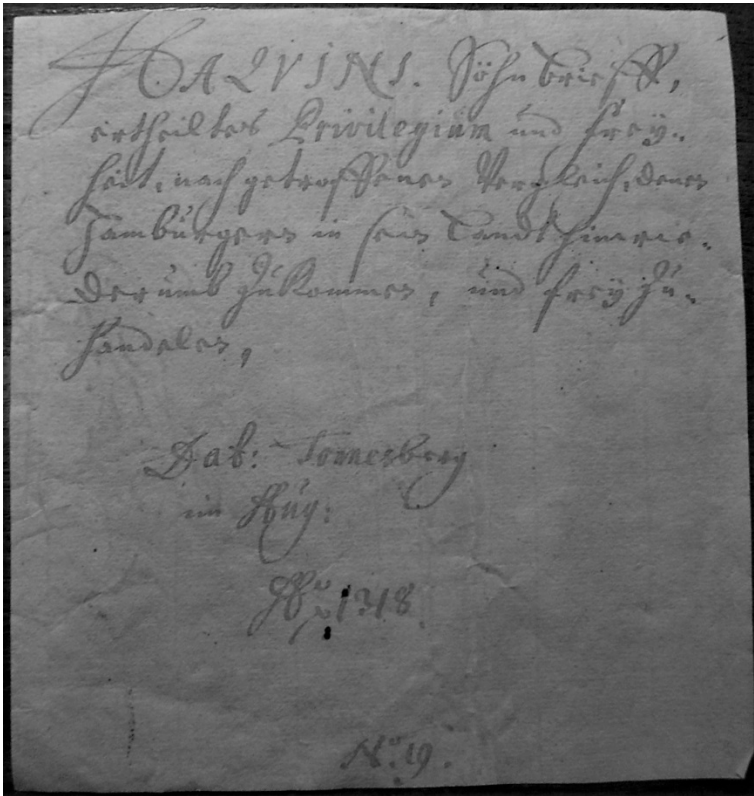 HALVINI. Söhn brieff,
ertheiltes Privilegium und frey-
heit, nach getroffenen Vergleich, denen
Hamburgern in sein Landt hinwie-
derumb zukommen, und frey zu-
handelen,
Dat: Tonnesberg
im Aug:
Aõ 1318
No. 19.